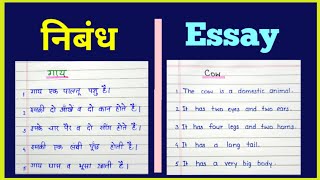 निबंध
गाय
1 गाय एक पालतू पशु है।
2 इसकी दो आँखे व दो कान होते है।
3 इसके चार पैर व दो सींग होते है।
4 इसकी एक लंबी पूँछ होती है।
5 गाय घास व भूसा खाती है।
Essay
Cow
1 The cow is a domestic animal.
2 It has two eyes and two ears.
3 It has four legs and two horns.
4 It has a long tail.
5 It has a very big body.